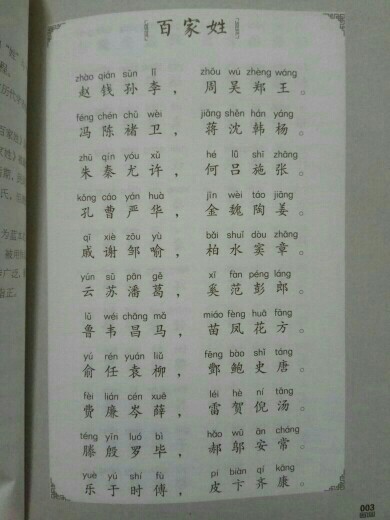 百家姓
zhào qián sūn lǐ zhōu wú zhèng wáng
赵钱孙李，周吴郑王。
féng chén chǔ wèi jiǎng shěn hán yáng
冯陈褚卫，蒋沈韩杨。
zhū qín yóu xǔ hé lǚ shī zhāng
朱秦尤许，何吕施张。
kǒng cáo yán huà jīn wèi táo jiāng
孔曹严华，金魏陶姜。
qī xiè zōu yù bǎi shuǐ dòu zhāng
戚谢邹喻，柏水窦章。
yún sū pān gě xī fàn péng láng
云苏潘葛，奚范彭郎。
lǔ wéi chāng mǎ miáo fèng huā fāng
鲁韦昌马，苗凤花方。
yú rén yuán liǔ fēng bào shǐ táng
俞任袁柳，酆鲍史唐。
fèi lián cén xuē léi hè ní tāng
费廉岑薛，雷贺倪汤。
téng yīn luó bì hǎo wū ān cháng
滕殷罗毕，郝邬安常。
yuè yú shí fù pí biàn qí kāng
乐于时傅，皮卞齐康。
003